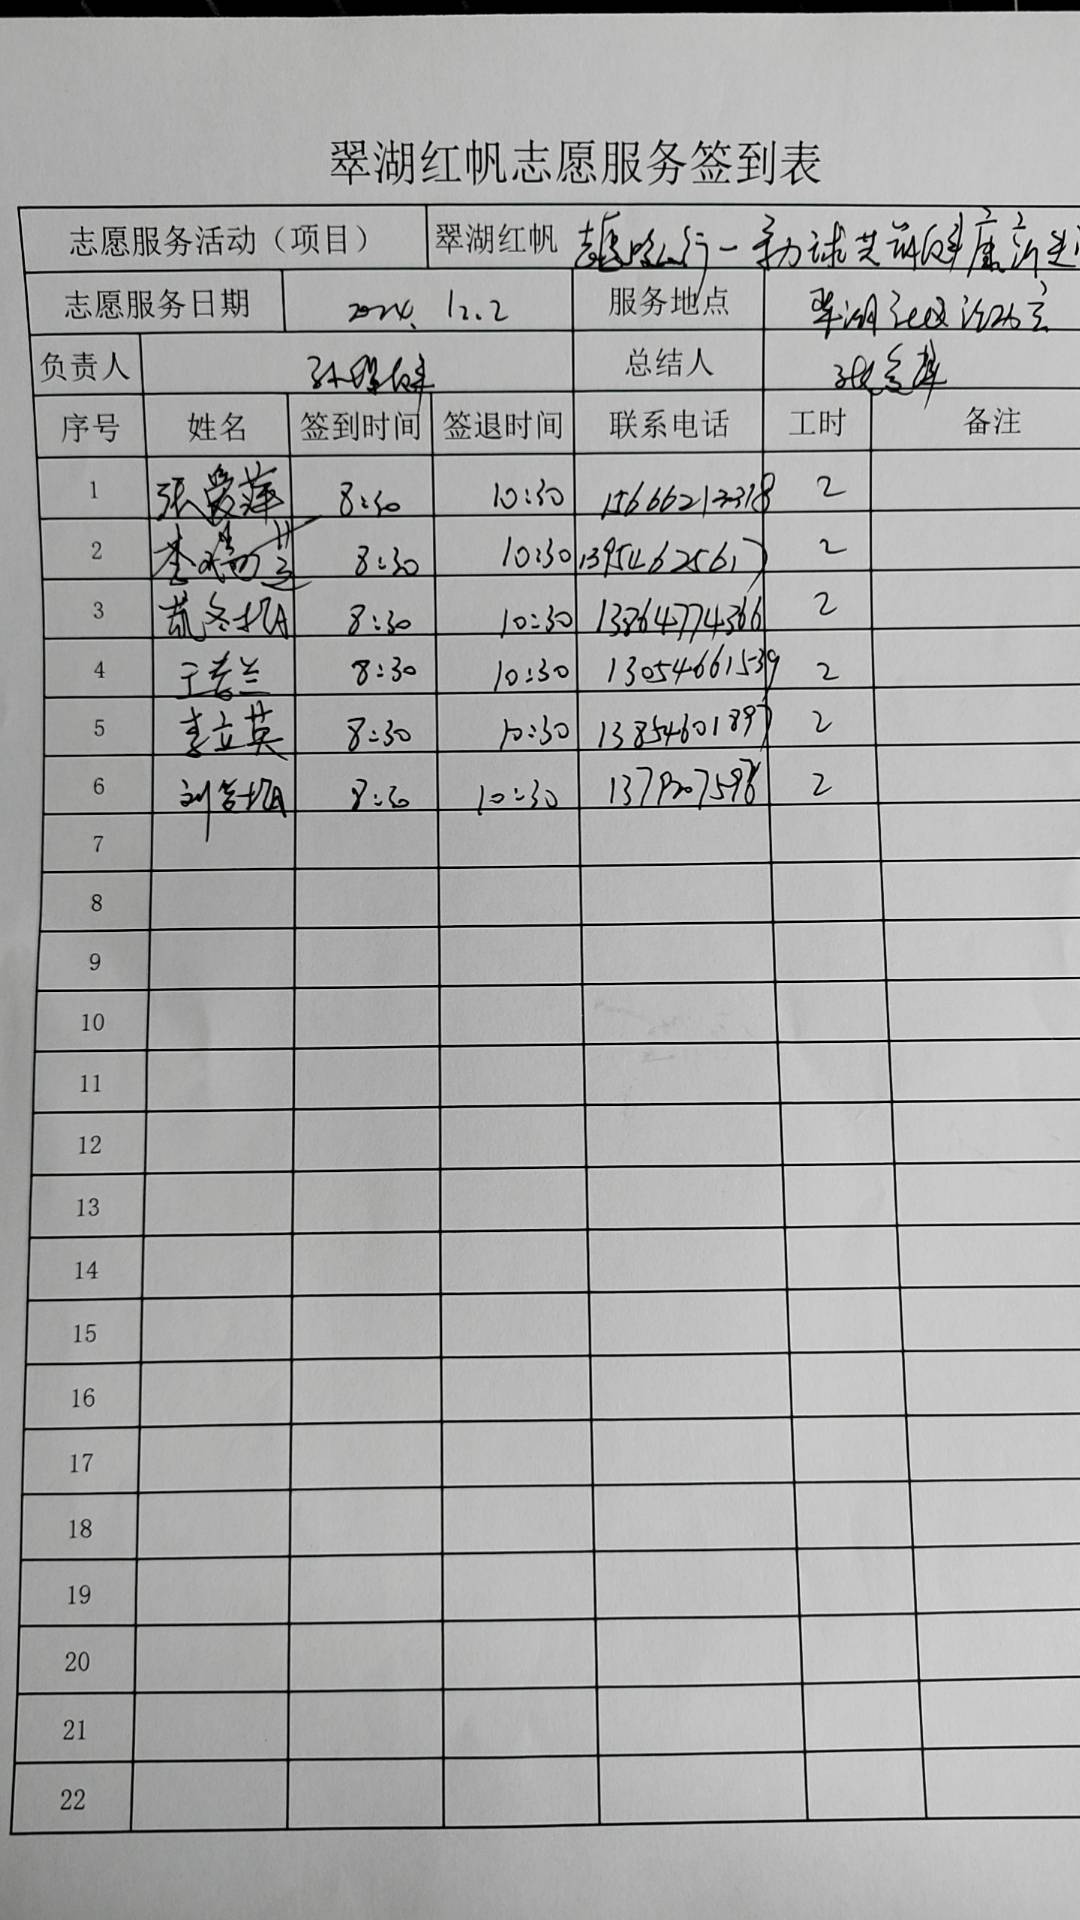 翠湖红帆志愿服务签到表
志愿服务活动（项目） 翠湖红帆
志愿服务日期 2024.12.2 服务地点 翠湖社区
负责人 总结人
序号 姓名 签到时间 签退时间 联系电话 工时 备注
1 张爱萍 8:30 10:30 2
2 8:30 10:30 13954625617 2
3 8:30 10:30 13864774366 2
4 王老兰 8:30 10:30 13054661539 2
5 李立英 8:30 10:30 13854601897 2
6 8:30 10:30 2
7
8
9
10
11
12
13
14
15
16
17
18
19
20
21
22